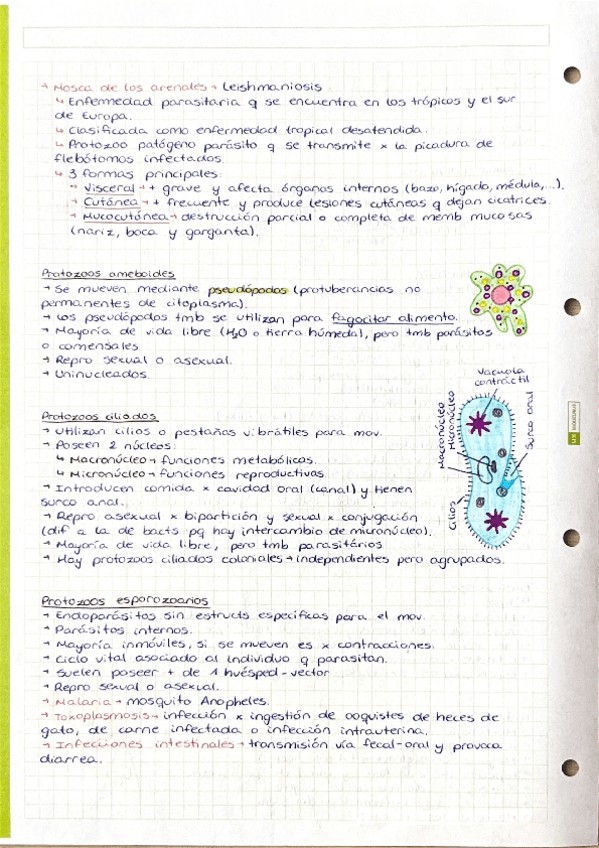 → Mosca de los arenales → Leishmaniosis
↳ Enfermedad parasitaria q se encuentra en los trópicos y el sur
de Europa.
↳ Clasificada como enfermedad tropical desatendida.
↳ Protozoo patógeno parásito q se transmite x la picadura de
flebótomos infectados.
↳ 3 formas principales:
→ Visceral → + grave y afecta órganos internos (bazo, hígado, médula,...).
→ Cutánea → + frecuente y produce lesiones cutáneas q dejan cicatrices.
→ Mucocutánea → destrucción parcial o completa de memb mucosas
(nariz, boca y garganta).
Protozoos ameboides
→ Se mueven mediante pseudópodos (protuberancias no
permanentes de citoplasma).
→ Los pseudópodos tmb se utilizan para fagocitar alimento.
→ Mayoría de vida libre (H₂O o tierra húmeda), pero tmb parásitos
o comensales
→ Repro sexual o asexual.
→ Uninucleados.
Protozoos ciliados
→ Utilizan cilios o pestañas vibrátiles para mov.
→ Poseen 2 núcleos:
↳ Macronúcleo → funciones metabólicas.
↳ Micronúcleo → funciones reproductivas.
→ Introducen comida x cavidad oral (canal) y tienen
surco anal.
→ Repro asexual x bipartición y sexual x conjugación
(dif a la de bacts pq hay intercambio de micronúcleo).
→ Mayoría de vida libre, pero tmb parasitários.
→ Hay protozoos ciliados coloniales → independientes pero agrupados.
Vacuola
contráctil
Macronúcleo
Micronúcleo
Surco oral
Cilios
Protozoos esporozoarios
→ Endoparásitos sin estructs específicas para el mov.
→ Parásitos internos.
→ Mayoría inmóviles, si se mueven es x contracciones.
→ Ciclo vital asociado al individuo q parasitan.
→ Suelen poseer + de 1 huésped-vector
→ Repro sexual o asexual.
→ Malaria → mosquito Anopheles.
→ Toxoplasmosis → infección x ingestión de ooquistes de heces de
gato, de carne infectada o infección intrauterina.
→ Infecciones intestinales → transmisión vía fecal-oral y provoca
diarrea.